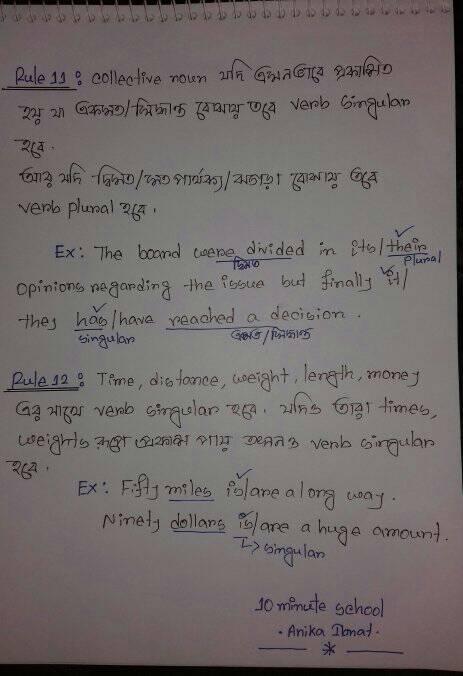 Rule 11 : collective noun যদি এমনভাবে প্রকাশিত
হয় যা একমত/সিদ্ধান্ত বোঝায় তবে verb singular
হবে.
আর যদি দ্বিমত/মত পার্থক্য/ঝগড়া বোঝায় তবে
verb plural হবে.
Ex: The board were divided in its/their
দ্বিমত
plural
opinions regarding the issue but finally it/
they has/have reached a decision.
singular
একমত/সিদ্ধান্ত
Rule 12 : Time, distance, weight, length, money
এর সাথে verb singular হবে. যদিও তারা times,
weights রূপে প্রকাশ পায় তখনও verb singular
হবে.
Ex: Fifty miles is/are a long way.
Ninety dollars is/are a huge amount.
singular
10 minute school
Anika Ibnat.